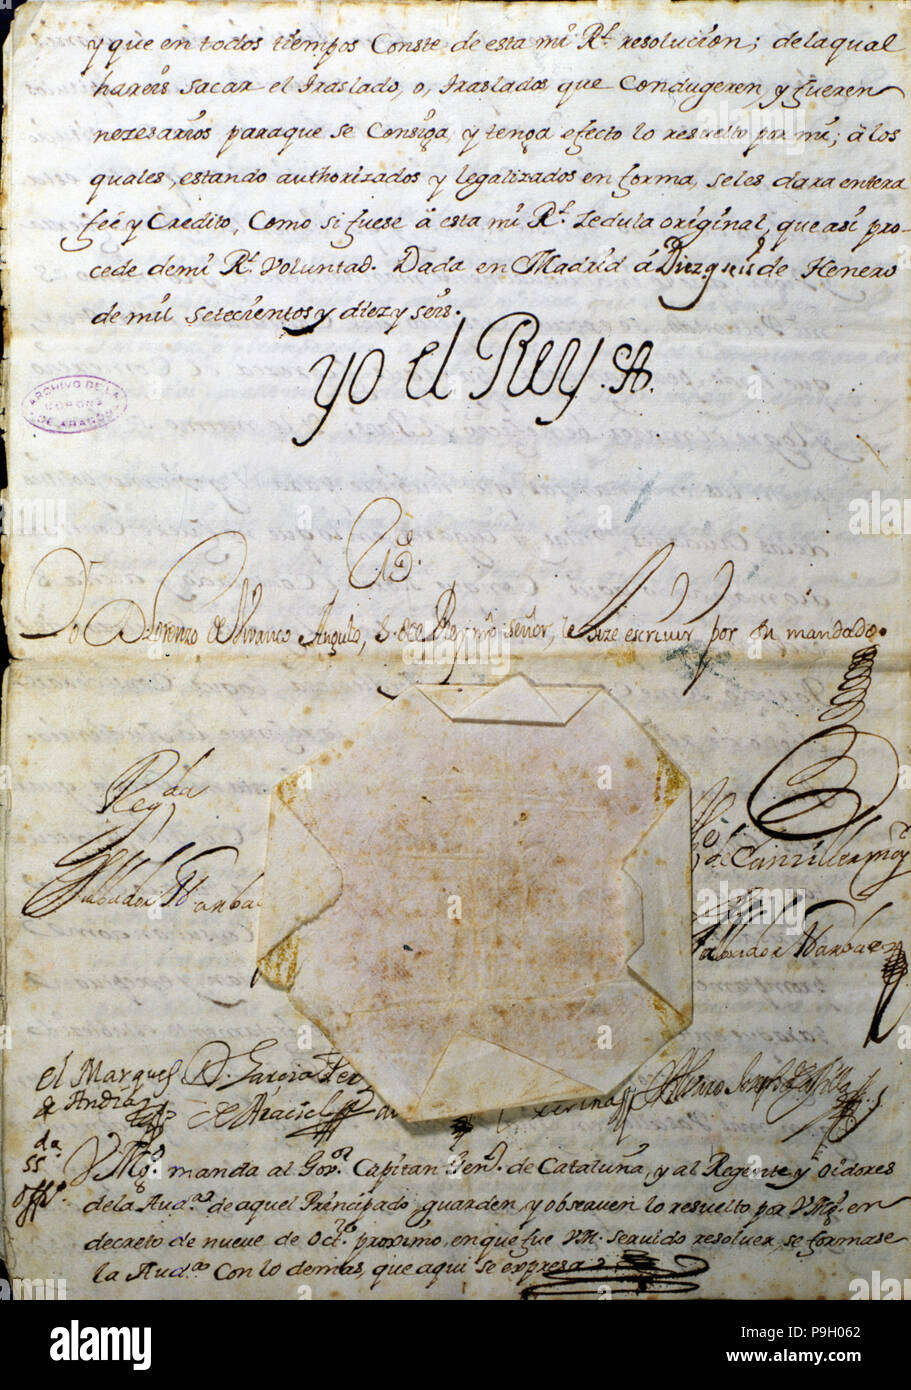 y que en todos tiempos Conste de esta mi Rl. resolucion; delaqual
hareis sacar el traslado, o, traslados que Condugeren, y fueren
nezesarios paraque se Consiga, y tenga efecto lo resuelto por mi; á los
quales, estando authorizados y legalizados en forma, seles dara entera
feé y Credito, Como si fuese á esta mi Rl. Zedula original, que asi pro-
cede demi Rl. Voluntad. Dada en Madrid á Diez y seis de Henero
de mil setecientos y diez y seis.
yo el Rey.
ARCHIVO DE LA
CORONA
DE ARAGON
Yo D. Lorenzo de Vivanco Angulo, S. del Rey mio señor, le hize escrivir por su mandado.
Regda
Salbador Narbaez
de Canziller mor
Salbador Narbaez
el Marques
de Andia
D. Garcia Perez
de Araciel
SSda
Offo.
V Mgd. manda al Govor. Capitan Genl. de Cataluña, y al Regente y Oidores
dela Auda. de aquel Principado, guarden, y observen lo resuelto por V Mgd. en
decreto de nueve de Octe. proximo, en que fue V M. servido resolver, se formase
la Auda. Con lo demas, que aqui se expresa
alamy
Image ID: P9H062
www.alamy.com